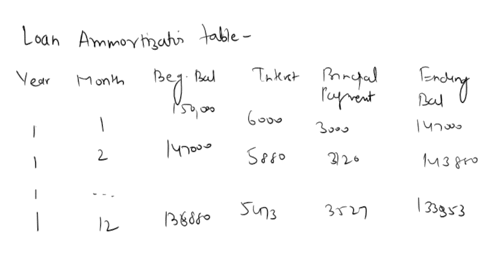 Loan Ammortizatis table -
Year Month Beg. Bal Interst Principal Payment Ending Bal
150,000
1 1 6000 3000 147000
1 2 147000 5880 3120 143880
1 ...
1 12 136880 5473 3527 133353